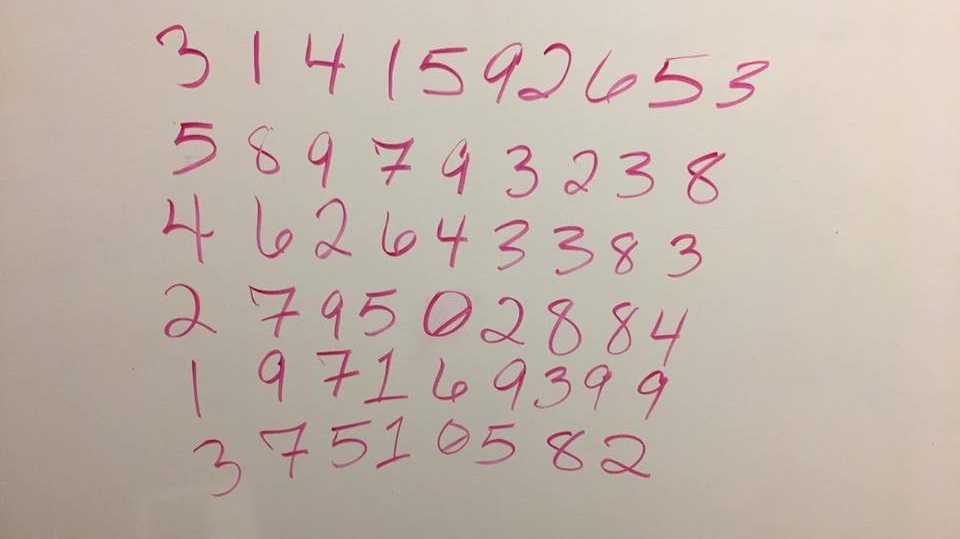 3 1 4 1 5 9 2 6 5 3
5 8 9 7 9 3 2 3 8
4 6 2 6 4 3 3 8 3
2 7 9 5 0 2 8 8 4
1 9 7 1 6 9 3 9 9
3 7 5 1 0 5 8 2